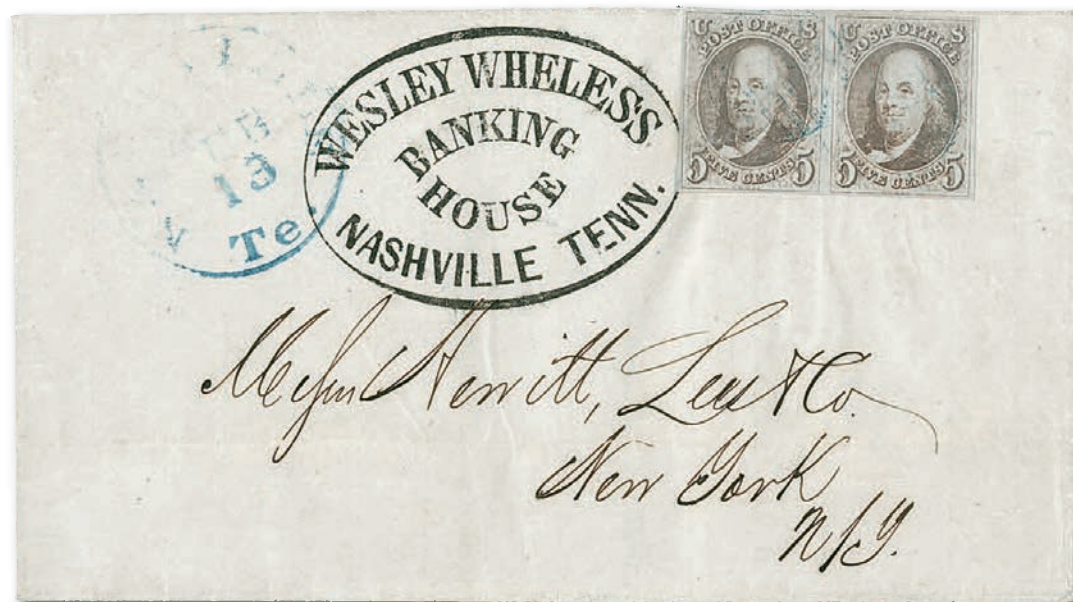 13
Te.
WESLEY WHELESS
BANKING
HOUSE
NASHVILLE TENN.
U S
POST OFFICE
5 FIVE CENTS 5
U S
POST OFFICE
5 FIVE CENTS 5
Messrs Hewitt, Lees & Co.
New York
N.Y.